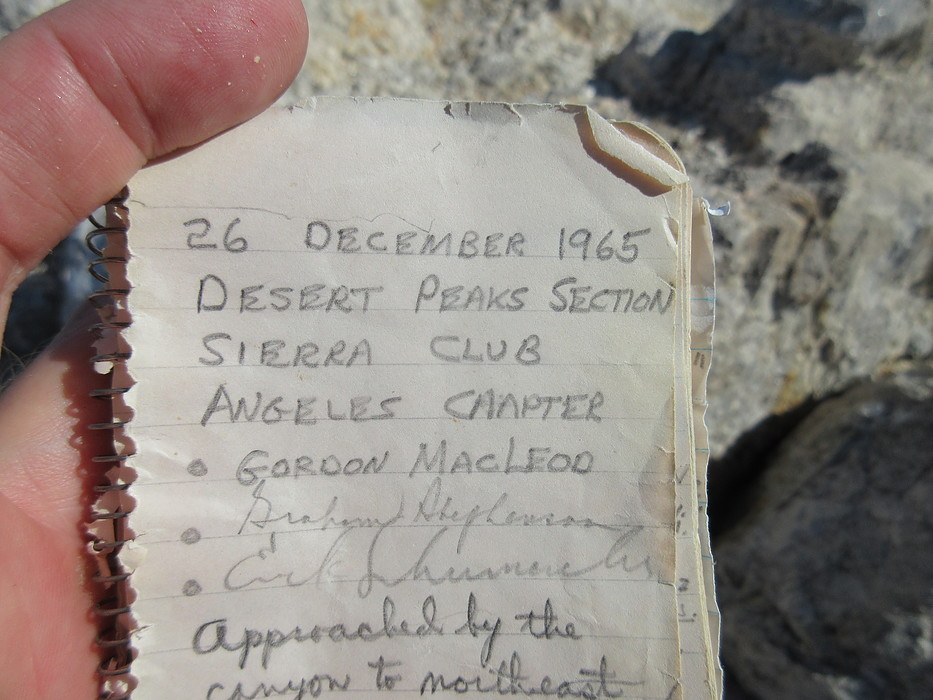 26 DECEMBER 1965
DESERT PEAKS SECTION
SIERRA CLUB
ANGELES CHAPTER
• GORDON MACLEOD
• Graham Stephenson
•
Approached by the
canyon to northeast